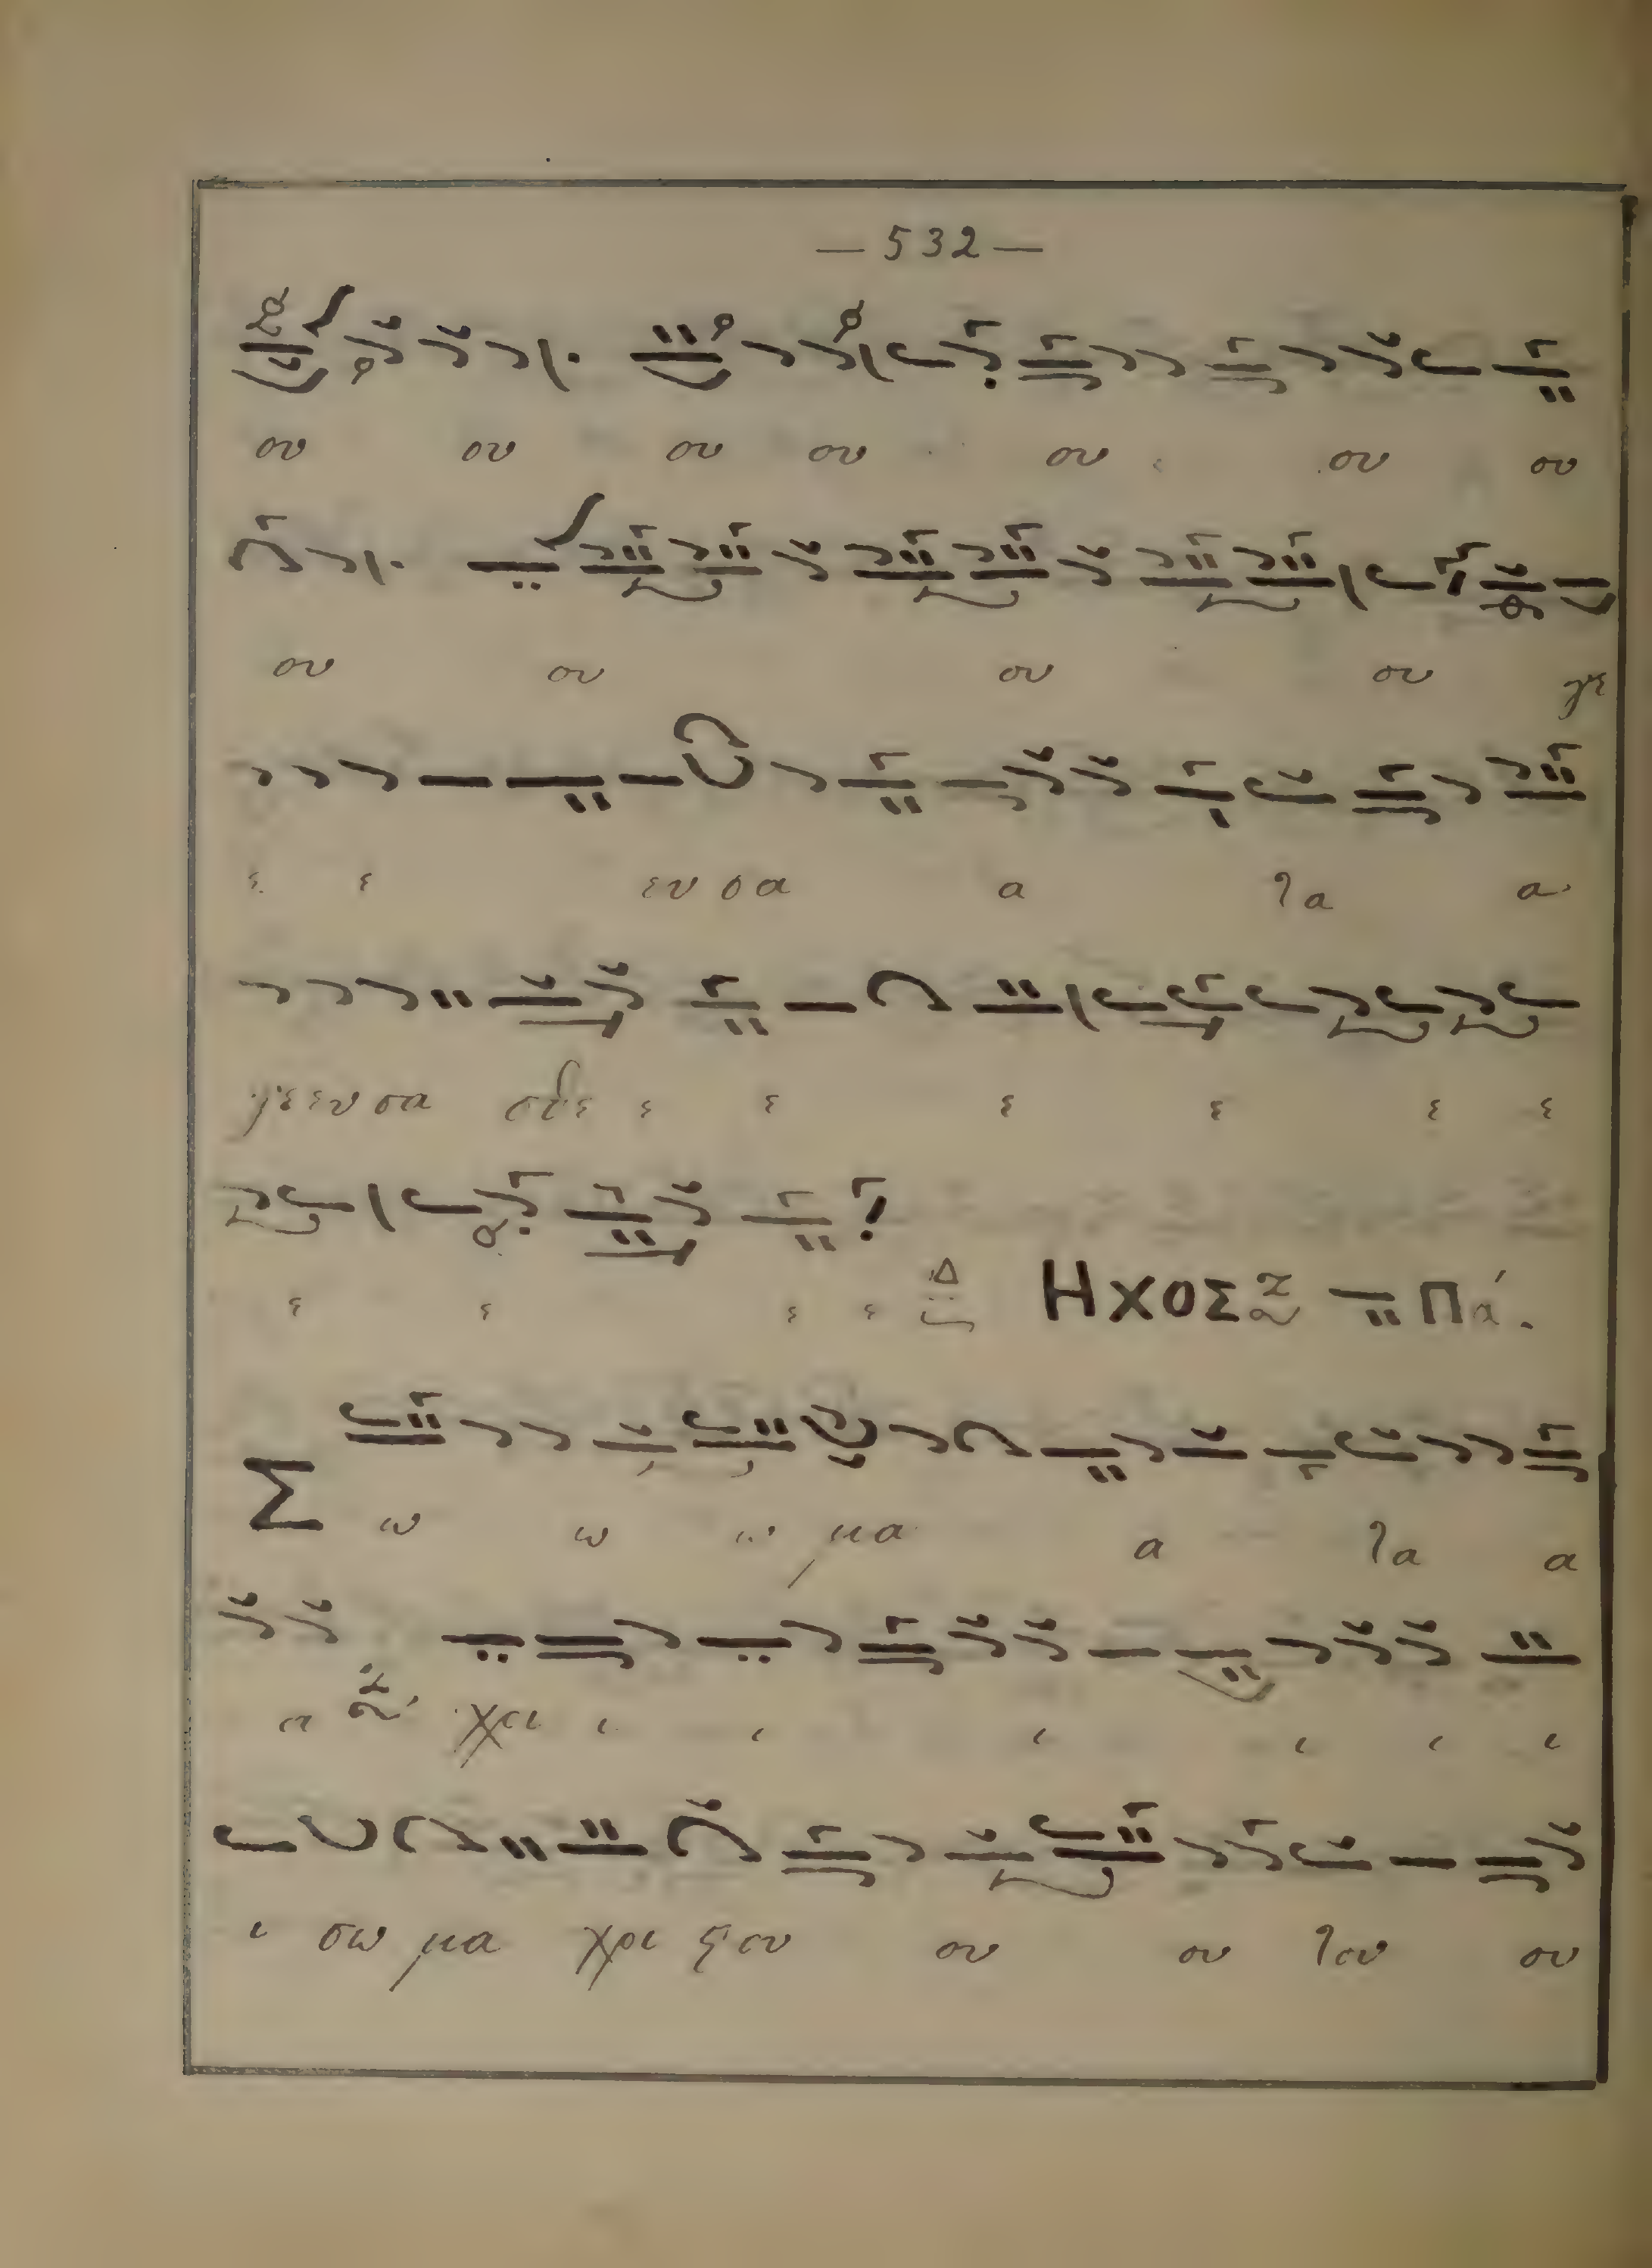 — 532 —
ου ου ου ου ου ου ου
ου ου ου ου γε
ε ε ευ σα α τα α
γε ευ σα σθε ε ε ε ε ε ε
ε ε ε ε Δ ΗΧΟΣ Πα.
Σ ω ω ω μα α τα α
α χρι ι ι ι ι ι ι
ι σω μα χρι στου ου ου του ου